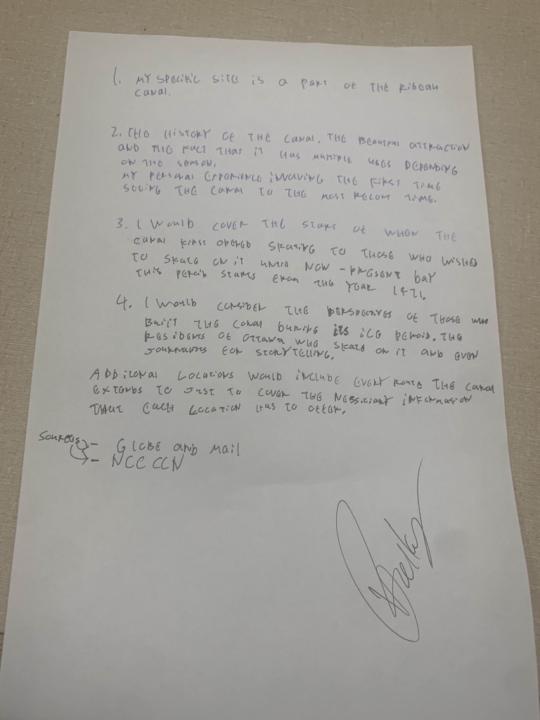 1. MY SPECIFIC SITE IS A PART OF THE RIDEAU
CANAL.
2. THE HISTORY OF THE CANAL, THE BEAUTIFUL ATTRACTION
AND THE FACT THAT IT HAS MULTIPLE USES DEPENDING
ON THE SEASON.
MY PERSONAL EXPERIENCE INVOLVING THE FIRST TIME
SEEING THE CANAL TO THE MOST RECENT TIME.
3. I WOULD COVER THE START OF WHEN THE
CANAL FIRST OPENED SKATING TO THOSE WHO WISHED
TO SKATE ON IT UNTIL NOW - PRESENT DAY
THIS PERIOD STARTS FROM THE YEAR 1971.
4. I WOULD CONSIDER THE PERSPECTIVES OF THOSE WHO
BUILT THE CANAL DURING ITS ICE PERIOD, THE
RESIDENTS OF OTTAWA WHO SKATE ON IT AND EVEN
JOURNALISTS FOR STORYTELLING.
ADDITIONAL LOCATIONS WOULD INCLUDE EVERY ROUTE THE CANAL
EXTENDS TO JUST TO COVER THE NESSICARY INFORMATION
THAT EACH LOCATION HAS TO OFFER.
SOURCES - GLOBE AND MAIL
- NCC CCN